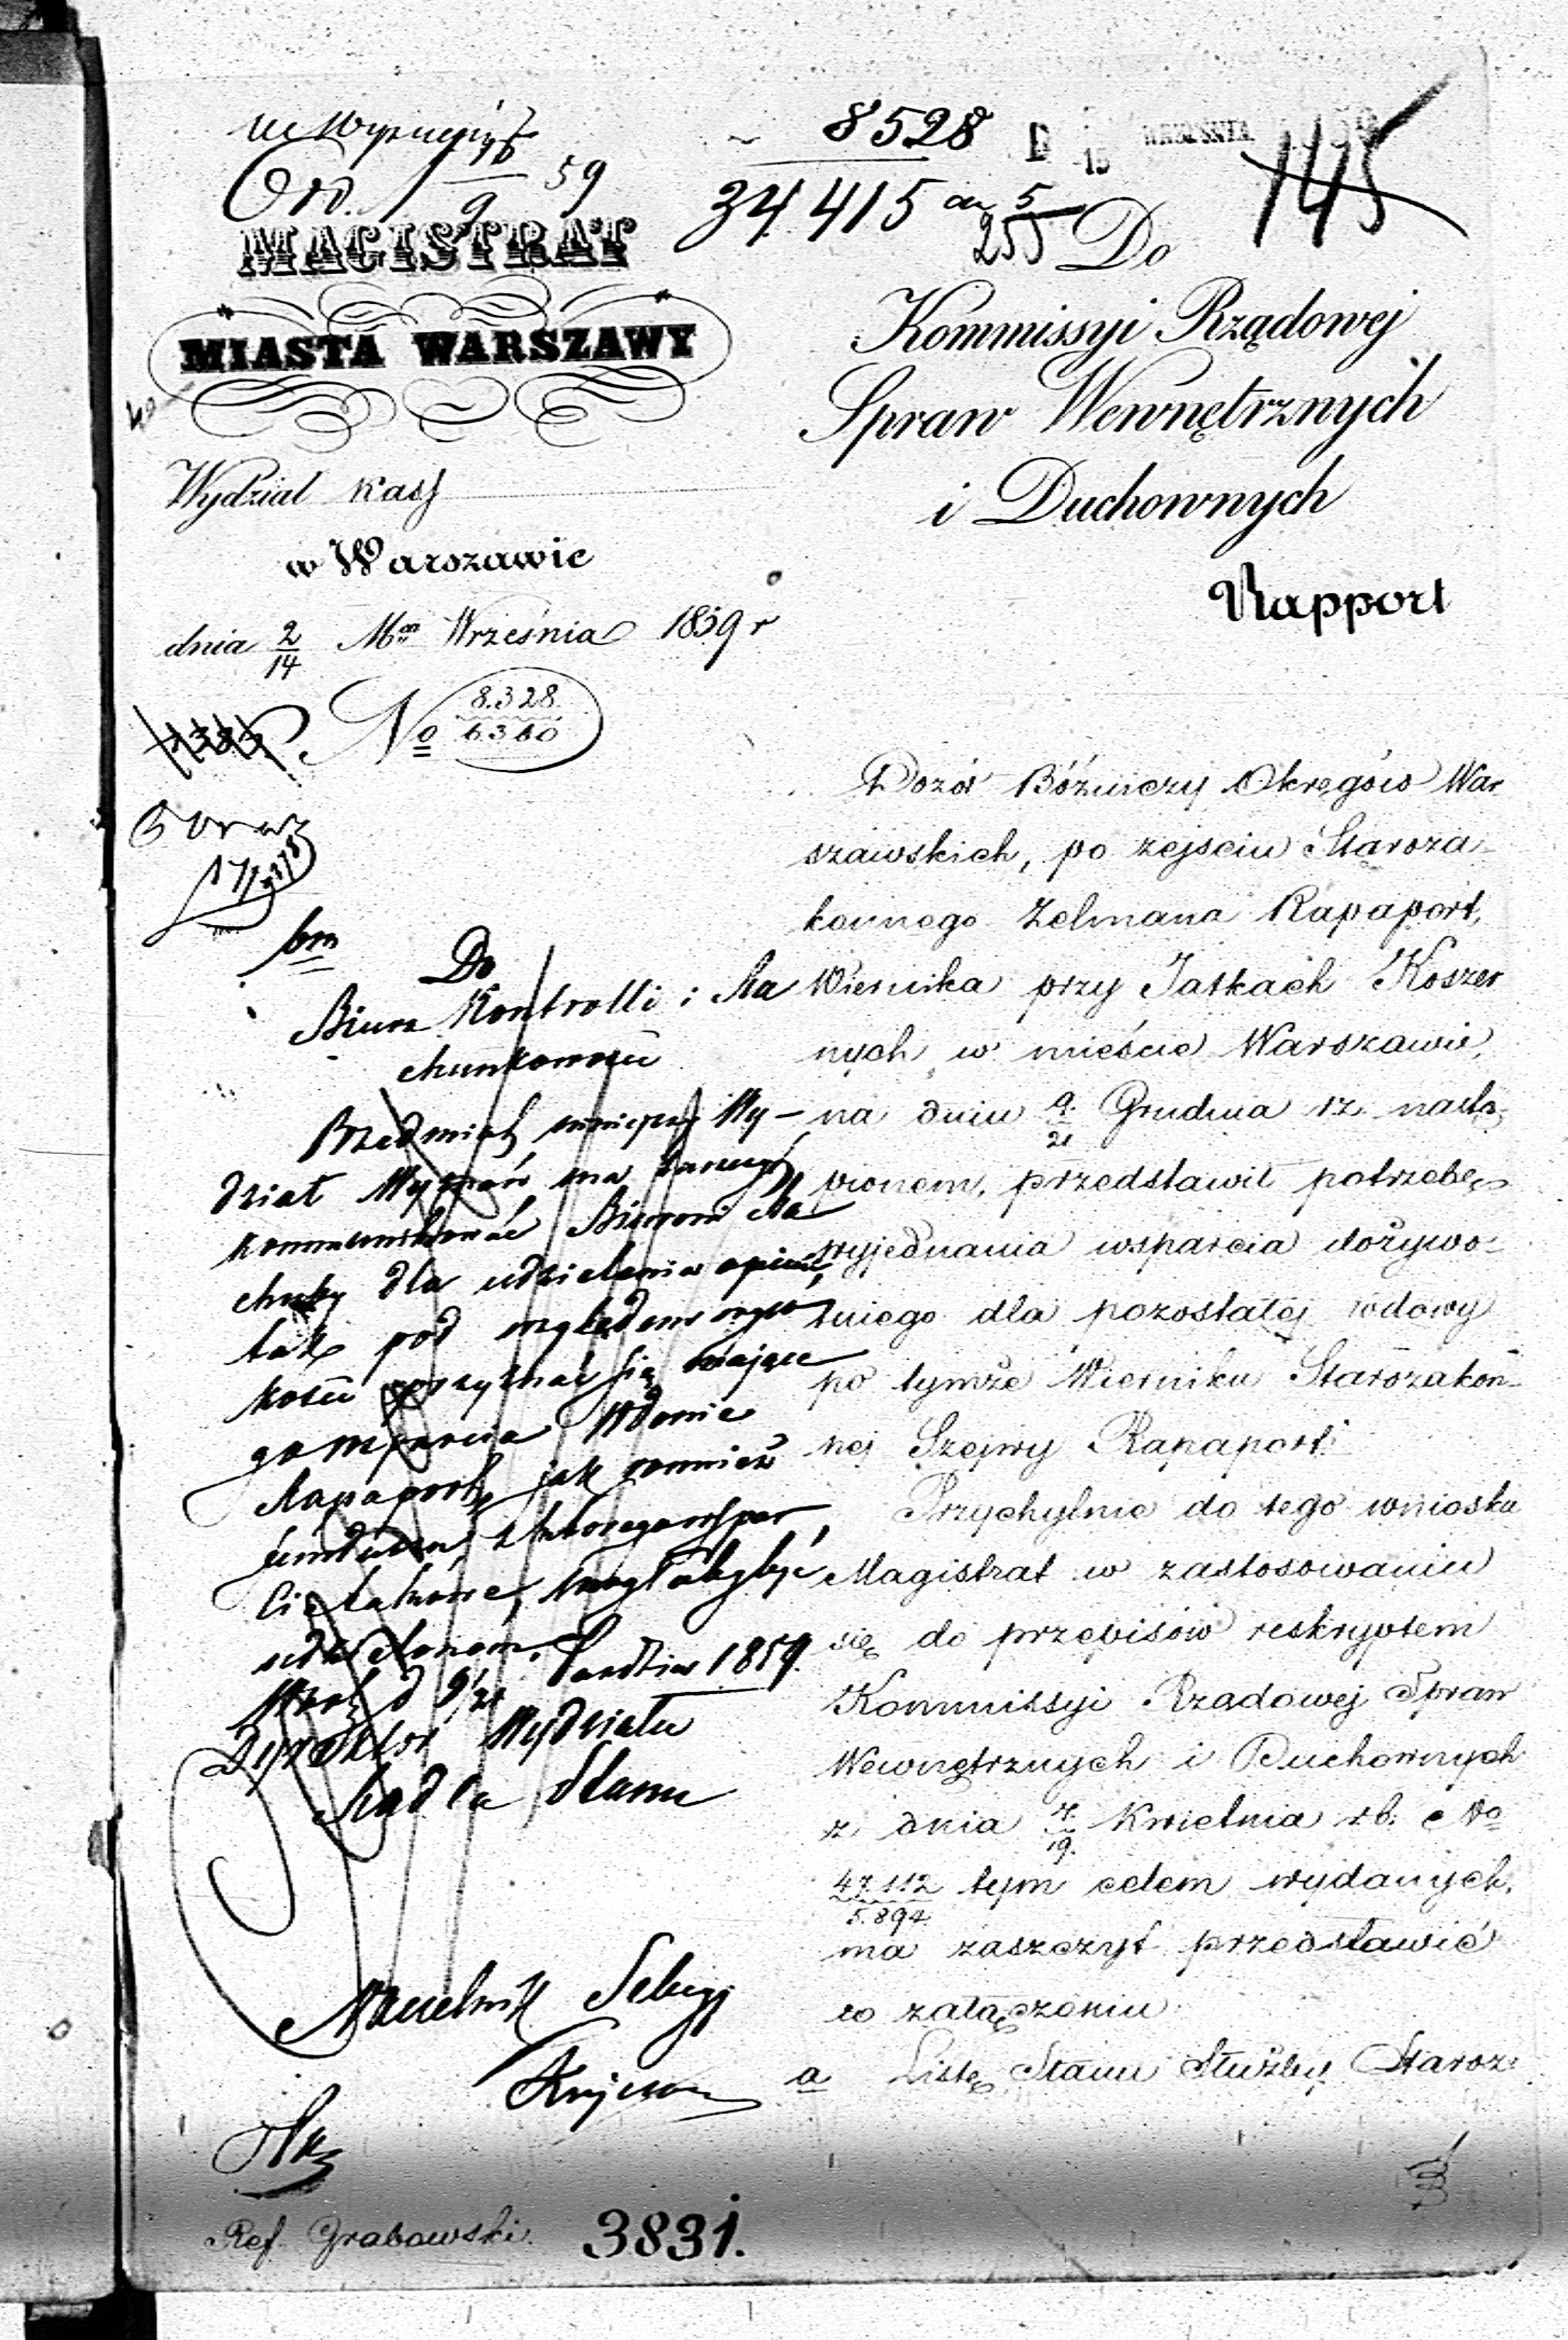 8528
34.415
255
145
15 WRZEŚNIA
59
MAGISTRAT
MIASTA WARSZAWY
Wydział Kass
w Warszawie
dnia 2/14 Mca Września 1859 r
No 8.328 / 6.360
Do
Kommissyi Rządowej
Spraw Wewnętrznych
i Duchownych
Rapport
Dozór Bóżniczy Okręgów War
szawskich, po zejściu Staroza-
konnego Zelmana Rapaport,
Wiernika przy Jatkach Koszer
nych w mieście Warszawie,
na dniu 9/21 Grudnia rz. nastą-
pionem, przedstawił potrzebę
wyjednania wsparcia dożywo-
tniego dla pozostałej wdowy
po tymże Wierniku Starozakon-
nej Szejwy Rapaport.
Przychylnie do tego wniosku
Magistrat w zastosowaniu
się do przepisów reskryptem
Kommissyi Rządowej Spraw
Wewnętrznych i Duchownych
z dnia 7/19 Kwietnia rb. No
47.112 / 5.894 tym celem wydanych,
ma zaszczyt przedstawić
w załączeniu
a Listę Stanu Służby Staroz:
Do
Biura Kontrolli i Ra
chunkowości
Przedmiot niniejszy Wy-
dział Wyznań ma
kommunikować Biurowi Ra
chuby dla udzielenia opinii,
tak pod względem wyso
kości przyznać się mające
go wsparcia Wdowie
Rapaport, jak również
funduszu z którego wspar
cie takowe, mogłoby być
udzielonem.
d 9/21 1859.
Dyrektor Wydziału
Radca Stanu
Naczelnik Sekcyi
Ref. Grabowski.
3831.